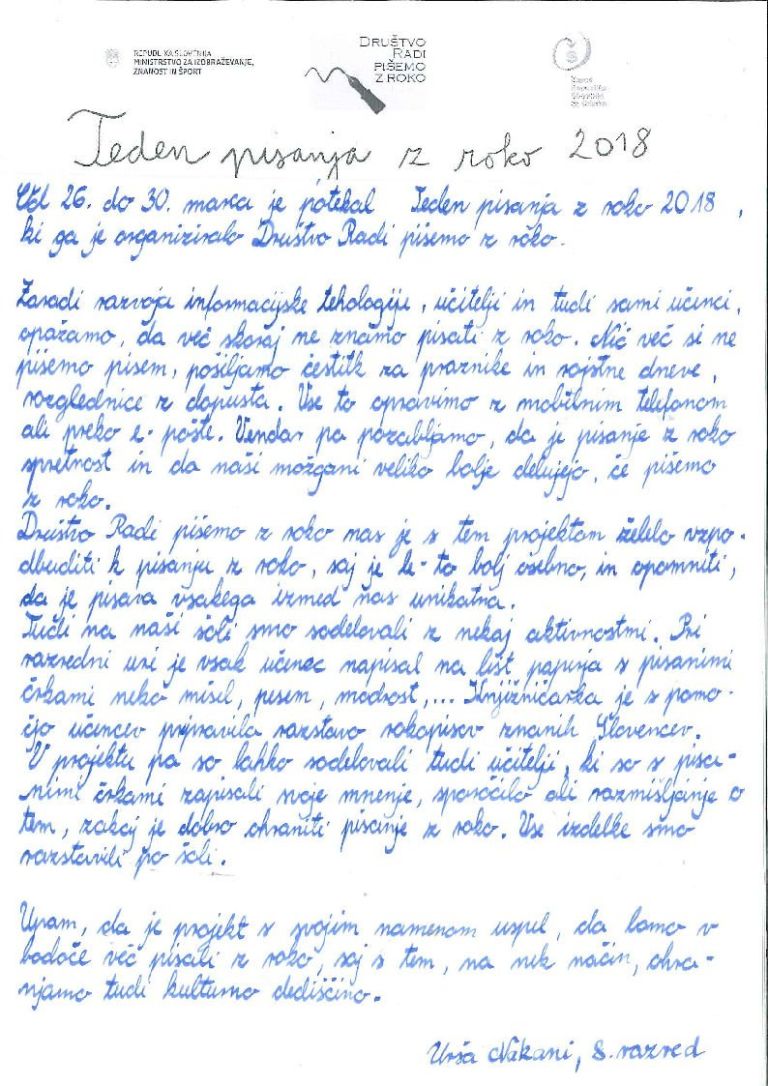 REPUBLIKA SLOVENIJA
MINISTRSTVO ZA IZOBRAŽEVANJE,
ZNANOST IN ŠPORT
DRUŠTVO
RADI
PIŠEMO
Z ROKO
Teden pisanja z roko 2018
Od 26. do 30. marca je potekal Teden pisanja z roko 2018,
ki ga je organiziralo Društvo Radi pišemo z roko.
Zaradi razvoja informacijske tehologije, učitelji in tudi sami učenci,
opažamo, da več skoraj ne znamo pisati z roko. Nič več si ne
pišemo pisem, pošiljamo čestitk za praznike in rojstne dneve,
razglednice z dopusta. Vse to opravimo z mobilnim telefonom
ali preko e-pošte. Vendar pa pozabljamo, da je pisanje z roko
spretnost in da naši možgani veliko bolje delujejo, če pišemo
z roko.
Društvo Radi pišemo z roko nas je s tem projektom želelo vzpo-
dbuditi k pisanju z roko, saj je le-to bolj osebno, in opomniti,
da je pisava vsakega izmed nas unikatna.
Tudi na naši šoli smo sodelovali z nekaj aktivnostmi. Pri
razredni uri je vsak učenec napisal na list papirja s pisanimi
črkami neko misel, pesem, modrost,... Knjižničarka je s pomo-
čjo učencev pripravila razstavo rokopisov znanih Slovencev.
V projektu pa so lahko sodelovali tudi učitelji, ki so s pisa-
nimi črkami zapisali svoje mnenje, sporočilo ali razmišljanje o
tem, zakaj je dobro ohraniti pisanje z roko. Vse izdelke smo
razstavili po šoli.
Upam, da je projekt s svojim namenom uspel, da bomo v
bodoče več pisali z roko, saj s tem, na nek način, ohra-
njamo tudi kulturno dediščino.
Urša Nakani, 8. razred